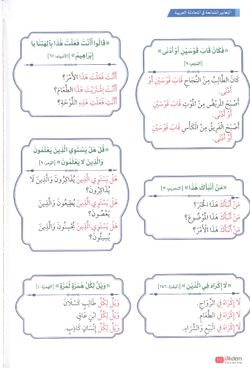 التعابير الشائعة في المحادثة العربية
«فَكَانَ قَابَ قَوْسَيْنِ أَوْ أَدْنَى»
[النجم: ٩]
أَصْبَحَ الطَّالِبُ مِنَ النَّجَاحِ
قَابَ قَوْسَيْنِ أَوْ أَدْنَى.
أَصْبَحَ الْفَرِيقُ مِنَ الْكَأْسِ
قَابَ قَوْسَيْنِ أَوْ أَدْنَى.
«قَالُوا أَأَنْتَ فَعَلْتَ هَذَا بِآلِهَتِنَا يَا
إِبْرَاهِيمُ» [الأنبياء: ٦٢]
أَأَنْتَ فَعَلْتَ هَذَا الْأَمْرَ؟
أَأَنْتَ اشْتَرَيْتَ هَذَا الطَّعَامَ؟
هَذِهِ اللَّوْحَةَ؟
«مَنْ أَنْبَأَكَ هَذَا» [التحريم: ٣]
مَنْ أَنْبَأَكَ هَذَا الْخَبَرَ؟
مَنْ أَنْبَأَكَ هَذَا الْمَوْضُوعَ؟
مَنْ أَنْبَأَكَ هَذَا الْأَمْرَ؟
«قُلْ هَلْ يَسْتَوِي الَّذِينَ يَعْلَمُونَ
وَالَّذِينَ لَا يَعْلَمُونَ» [الزمر: ٩]
هَلْ يَسْتَوِي الَّذِينَ يُذَاكِرُونَ وَالَّذِينَ لَا
يُذَاكِرُونَ؟
هَلْ يَسْتَوِي الَّذِينَ وَالَّذِينَ لَا
هَلْ يَسْتَوِي الَّذِينَ وَالَّذِينَ لَا
«لَا إِكْرَاهَ فِي الدِّينِ» [البقرة: ٢٥٦]
لَا إِكْرَاهَ فِي الزَّوَاجِ.
لَا إِكْرَاهَ فِي الطَّعَامِ.
لَا إِكْرَاهَ فِي الْبَيْعِ وَالشِّرَاءِ.
«وَيْلٌ لِكُلِّ هُمَزَةٍ لُمَزَةٍ» [الهمزة: ١]
وَيْلٌ لِكُلِّ طَالِبٍ كَسْلَانَ.
وَيْلٌ لِكُلِّ ابْنٍ عَاقٍّ.
وَيْلٌ لِكُلِّ إِنْسَانٍ كَاذِبٍ.